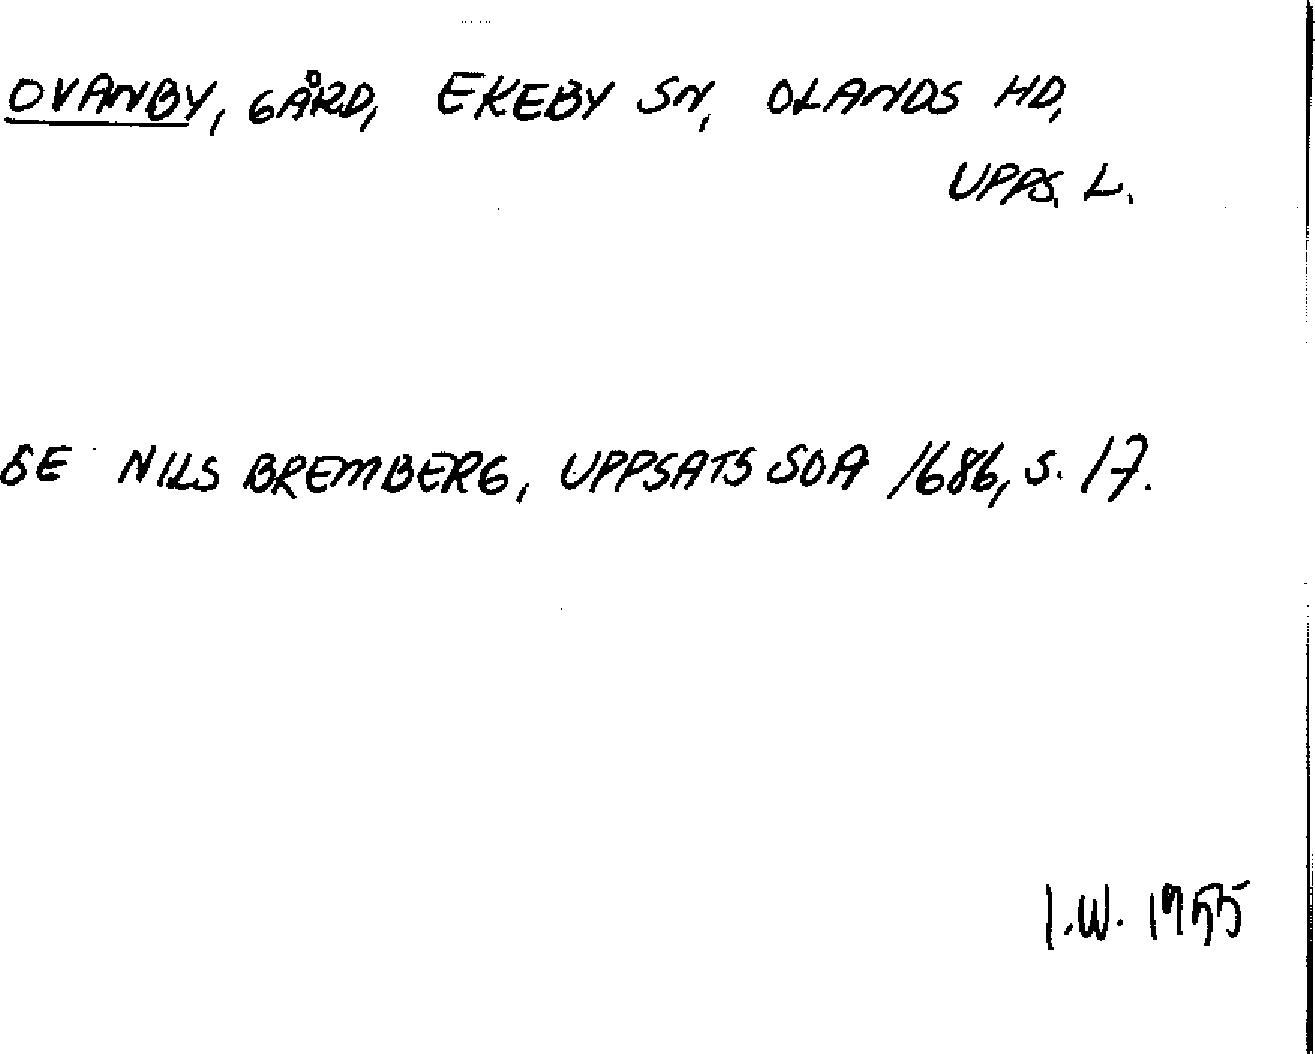 OVANBY, GÅRD, EKEBY SN, OLANDS HD,
UPPS. L.
SE NILS BREMBERG, UPPSATS SOA 1686, S. 17.
I.W. 1955